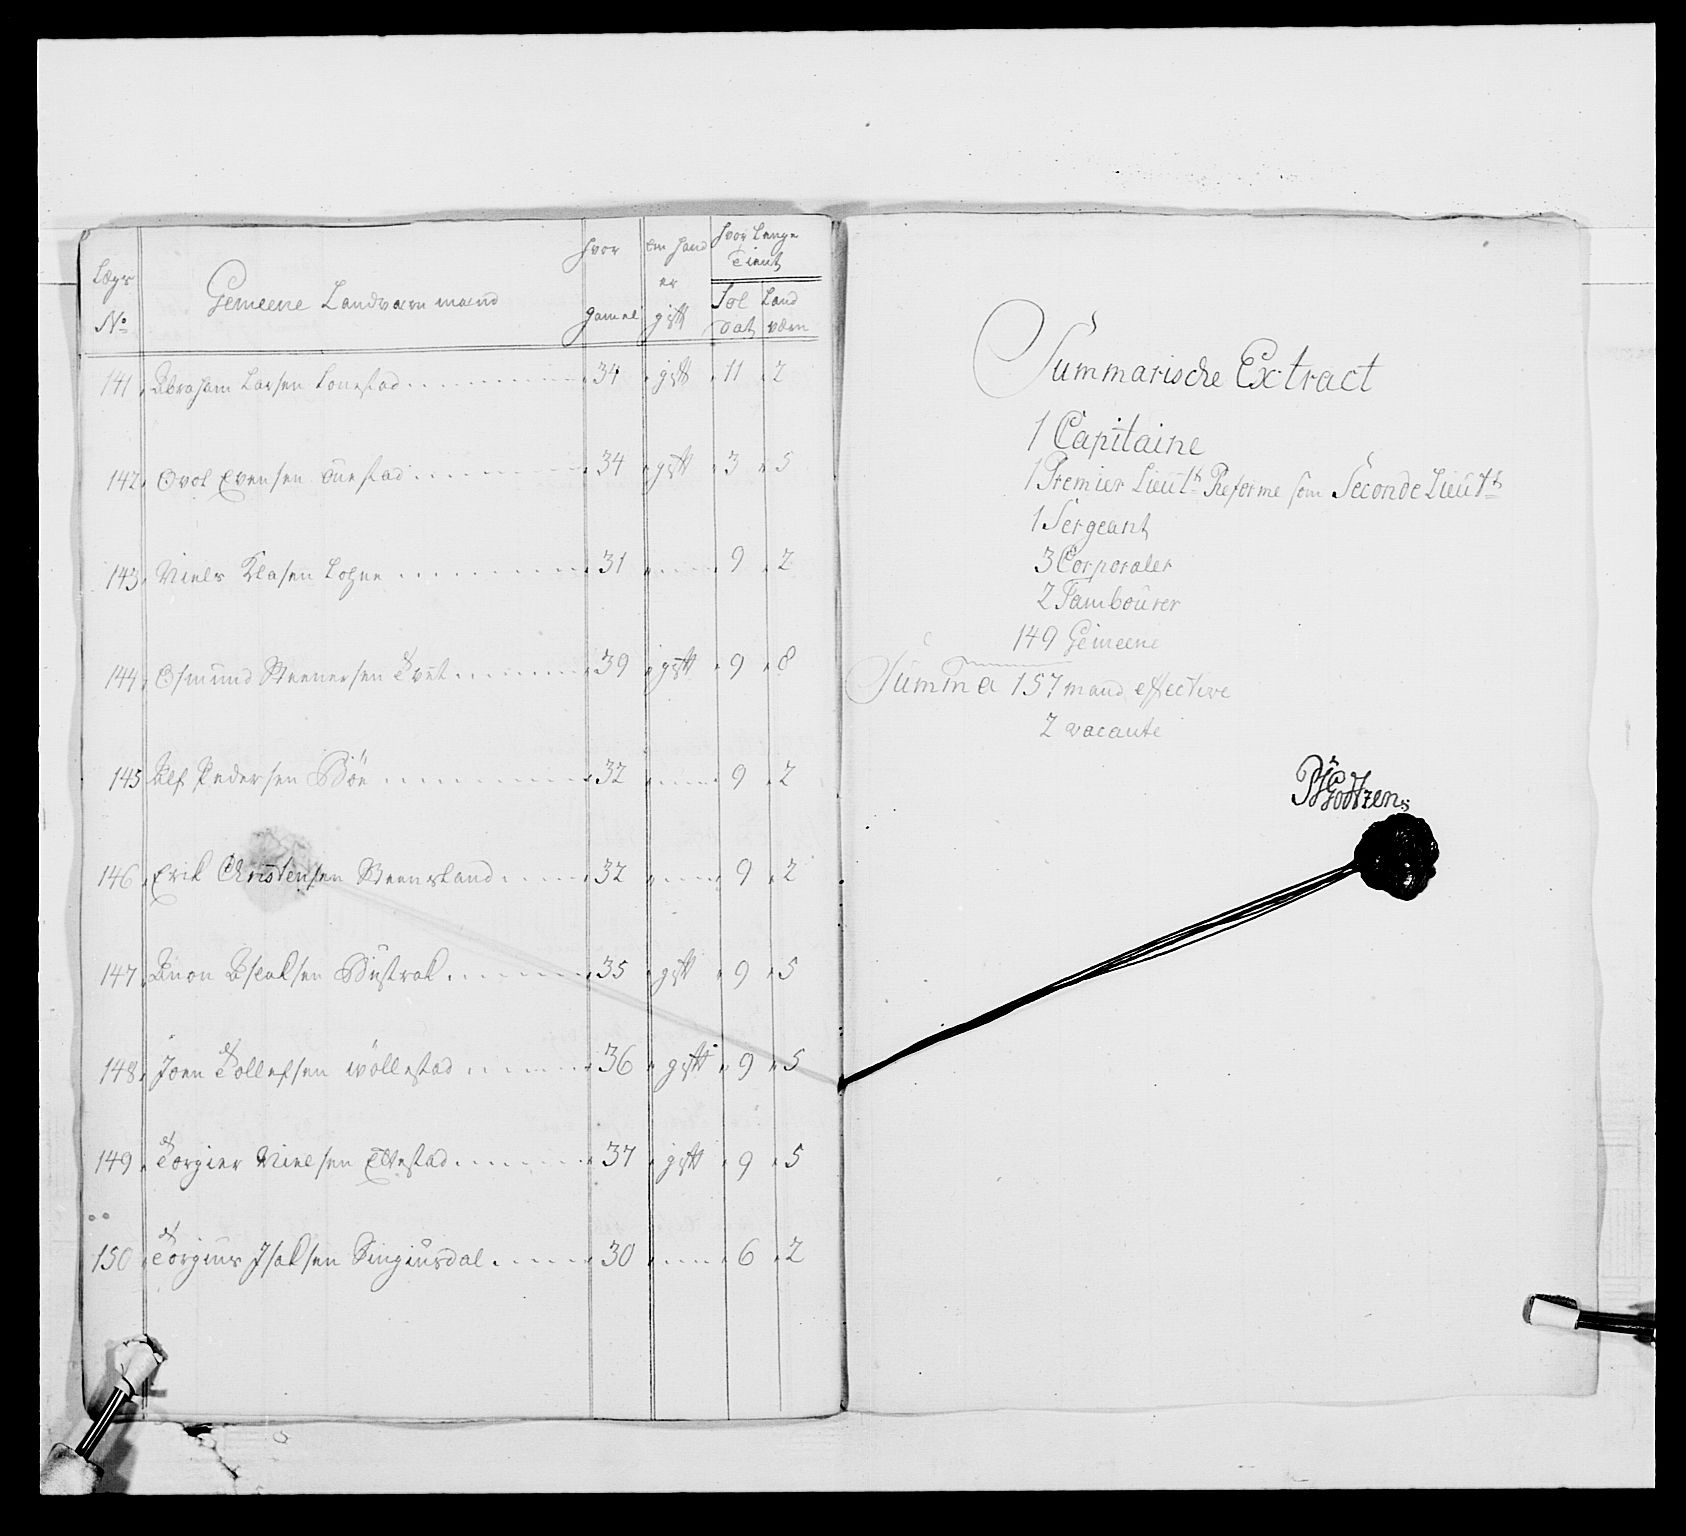 Lægs No Gemeene Landværn mænd hvor gamel om hand er gift hvor lenge tient Sol dat Land værn
141 Abraham Larsen Lonestad 34 gift 11 2
142 Evensen 34 gift 3 5
143 Niels Olasen Lohne 31 9 2
144 Osmund Steenersen Tvet 39 gift 9 8
145 Alf Pedersen Böe 32 9 2
146 Erik Christensen Steensland 32 9 2
147 Anon Aslaksen Bustrak 35 gift 9 5
148 Joen Tollefsen Wöllestad 36 gift 9 5
149 Torgier Nielsen Eftestad 37 gift 9 5
150 Torgius Isaksen Ringiusdal 30 6 2
Summarische Extract
1 Capitaine
1 Premier Lieutt Reforme som Seconde Lieutt
1 Sergeant
3 Corporaler
2 Tambourer
149 Gemeene
Summa 157 mand effective
2 vacante